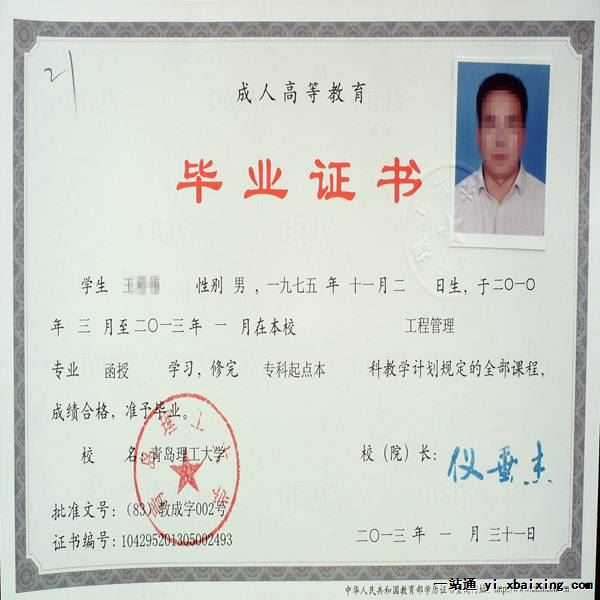 21
成人高等教育
毕业证书
学生 王 性别 男，一九七五 年 十一月二 日生，于二〇一〇
年 三 月至二〇一三年 一 月在本校 工程管理
专业 函授 学习，修完 专科起点本 科教学计划规定的全部课程，
成绩合格，准予毕业。
校 名：青岛理工大学 校（院）长：仪垂杰
批准文号：(83)教成字002号
证书编号：104295201305002493 二〇一三 年 一 月 三十一日
中华人民共和国教育部学历证书查询网址
一站通 yi.xbaixing.com